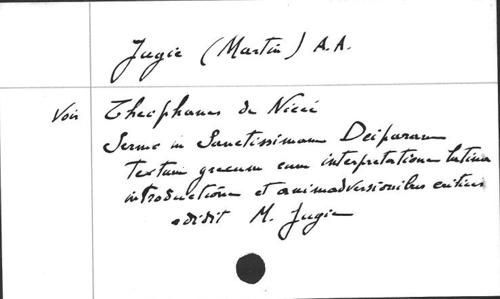 Jugie (Martin) A.A.
Voir Theophanes de Nicée
Sermo in Sanctissimam Deiparam
Textum grecum cum interpretatione latina
introductione et animadversionibus criticis
edidit M. Jugie